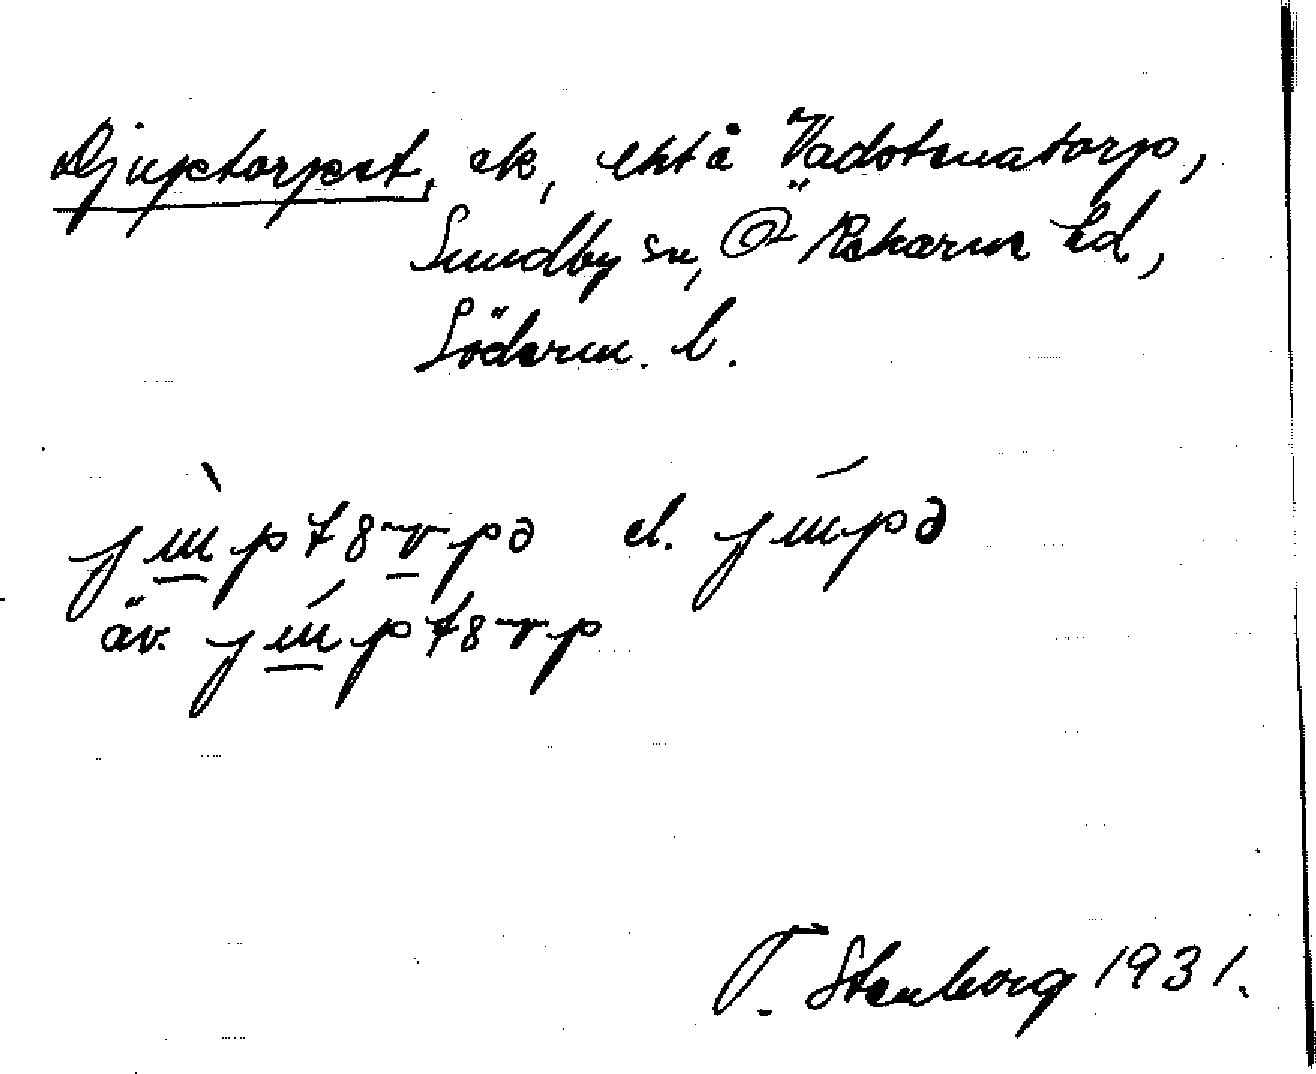 Djuptorpet, ek, ehtå Vadstenatorp,
Sundby sn, Ö Rekarne hd,
Söderm. l.
jɯ̀pt8rpə el. jɯ́pə
äv. jɯ́pt8rp
T. Stenborg 1931.